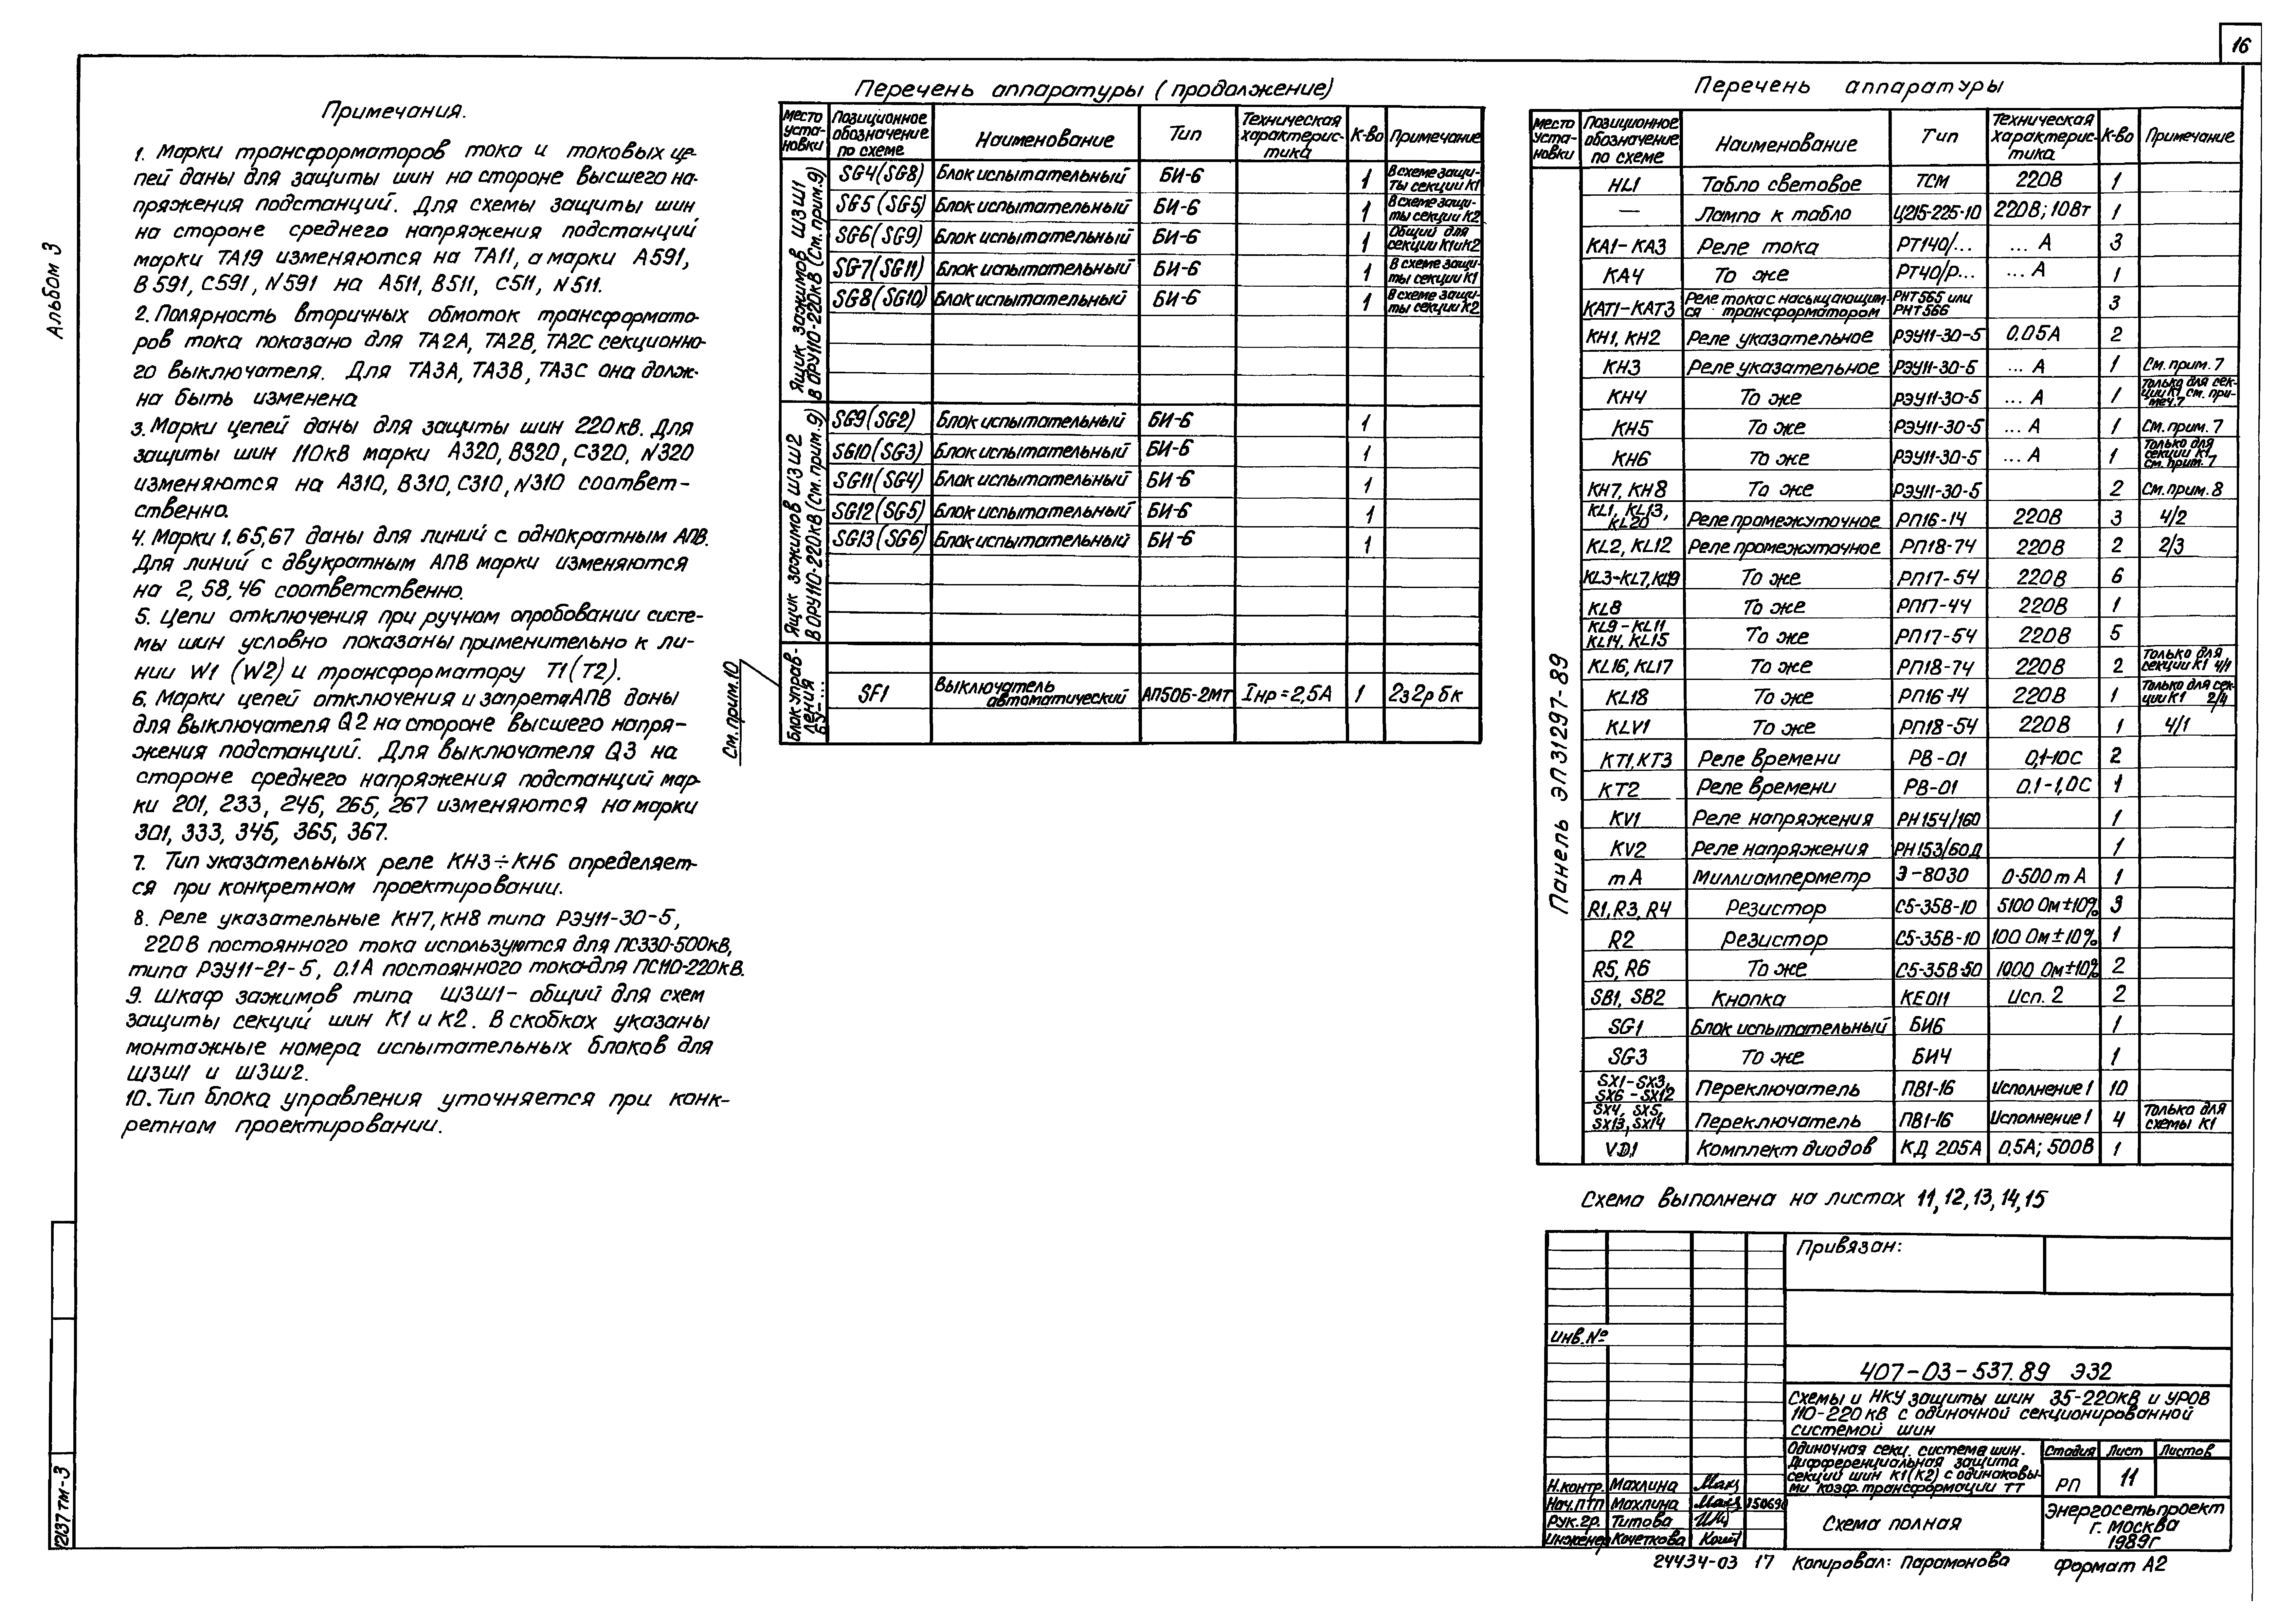 16
Альбом 3
Примечания.
1. Марки трансформаторов тока и токовых це-
пей даны для защиты шин на стороне высшего на-
пряжения подстанций. Для схемы защиты шин
на стороне среднего напряжения подстанций
марки ТА19 изменяются на ТА11, а марки А591,
В591, С591, N591 на А511, В511, С511, N511.
2. Полярность вторичных обмоток трансформато-
ров тока показано для ТА2А, ТА2В, ТА2С секционно-
го выключателя. Для ТА3А, ТА3В, ТА3С она долж-
на быть изменена
3. Марки цепей даны для защиты шин 220кВ. Для
защиты шин 110кВ марки А320, В320, С320, N320
изменяются на А310, В310, С310, N310 соответ-
ственно.
4. Марки 1, 65, 67 даны для линий с однократным АПВ.
Для линий с двукратным АПВ марки изменяются
на 2, 58, 46 соответственно.
5. Цепи отключения при ручном опробовании систе-
мы шин условно показаны применительно к ли-
нии W1 (W2) и трансформатору Т1 (Т2).
6. Марки цепей отключения и запрета АПВ даны
для выключателя Q2 на стороне высшего напря-
жения подстанций. Для выключателя Q3 на
стороне среднего напряжения подстанций мар-
ки 201, 233, 245, 265, 267 изменяются на марки
301, 333, 345, 365, 367.
7. Тип указательных реле КН3÷КН6 определяет-
ся при конкретном проектировании.
8. Реле указательные КН7, КН8 типа РЭУ11-30-5,
220В постоянного тока используются для ПС330-500кВ,
типа РЭУ11-21-5, 0.1А постоянного тока-для ПС110-220кВ.
9. Шкаф зажимов типа ШЗШ1- общий для схем
защиты секций шин К1 и К2. В скобках указаны
монтажные номера испытательных блоков для
ШЗШ1 и ШЗШ2.
10. Тип блока управления уточняется при конк-
ретном проектировании.
Перечень аппаратуры (продолжение)
Место уста-новки Позиционное обозначение по схеме Наименование Тип Техническая характерис-тика К-во Примечание
Ящик зажимов ШЗШ1 в ОРУ110-220кВ (См. прим.9)
SG4(SG8) Блок испытательный БИ-6 1 В схеме защи-ты секции К1
SG5(SG5) Блок испытательный БИ-6 1 В схеме защи-ты секции К2
SG6(SG9) Блок испытательный БИ-6 1 Общий для секции К1 и К2
SG7(SG11) Блок испытательный БИ-6 1 В схеме защи-ты секции К1
SG8(SG10) Блок испытательный БИ-6 1 В схеме защи-ты секции К2
Ящик зажимов ШЗШ2 в ОРУ110-220кВ (См. прим.9)
SG9(SG2) Блок испытательный БИ-6 1
SG10(SG3) Блок испытательный БИ-6 1
SG11(SG4) Блок испытательный БИ-6 1
SG12(SG5) Блок испытательный БИ-6 1
SG13(SG6) Блок испытательный БИ-6 1
См. прим.10
Блок управ-ления БУ-...
SF1 Выключатель автоматический АП50Б-2МТ Iнр=2,5А 1 2з2рбк
Перечень аппаратуры
Место уста-новки Позиционное обозначение по схеме Наименование Тип Техническая характерис-тика К-во Примечание
Панель ЭП31297-89
HL1 Табло световое ТСМ 220В 1
— Лампа к табло Ц215-225-10 220В; 10Вт 1
КА1-КА3 Реле тока РТ140/... ... А 3
КА4 То же РТ40/Р... ... А 1
КАТ1-КАТ3 Реле тока с насыщающим-ся трансформатором РНТ565 или РНТ566 3
КН1, КН2 Реле указательное РЭУ11-30-5 0,05А 2
КН3 Реле указательное РЭУ11-30-5 ... А 1 См. прим. 7
КН4 То же РЭУ11-30-5 ... А 1 Только для сек-ции К1 см. при-меч.7
КН5 То же РЭУ11-30-5 ... А 1 См. прим. 7
КН6 То же РЭУ11-30-5 ... А 1 Только для секции К1 См. прим. 7
КН7, КН8 То же РЭУ11-30-5 2 См. прим. 8
KL1, KL13, KL20 Реле промежуточное РП16-14 220В 3 4/2
KL2, KL12 Реле промежуточное РП18-74 220В 2 2/3
KL3-KL7, KL19 То же РП17-54 220В 6
KL8 То же РП17-44 220В 1
KL9-KL11 KL14, KL15 То же РП17-54 220В 5
KL16, KL17 То же РП18-74 220В 2 Только для секции К1 4/1
KL18 То же РП16-14 220В 1 Только для сек-ции К1 2/4
KLV1 То же РП18-54 220В 1 4/1
КТ1, КТ3 Реле времени РВ-01 0,1-10С 2
КТ2 Реле времени РВ-01 0,1-1,0С 1
KV1 Реле напряжения РН154/160 1
KV2 Реле напряжения РН153/60Д 1
mA Миллиамперметр Э-8030 0-500mA 1
R1, R3, R4 Резистор С5-35В-10 5100 Ом±10% 3
R2 Резистор С5-35В-10 100 Ом±10% 1
R5, R6 То же С5-35В-50 1000 Ом±10% 2
SB1, SB2 Кнопка КЕ011 Исп. 2 2
SG1 Блок испытательный БИ6 1
SG3 То же БИ4 1
SX1-SX3, SX6-SX12 Переключатель ПВ1-16 Исполнение 1 10
SX4, SX5, SX13, SX14 Переключатель ПВ1-16 Исполнение 1 4 Только для схемы К1
VD1 Комплект диодов КД 205А 0,5А; 500В 1
Схема выполнена на листах 11, 12, 13, 14, 15
Привязан:
Инв.№
407-03-537.89 ЭЗ2
Схемы и НКУ защиты шин 35-220кВ и УРОВ
110-220кВ с одиночной секционированной
системой шин
Одиночная секц. система шин.
Дифференциальная защита
секций шин К1(К2) с одинаковы-
ми коэф. трансформации ТТ
Стадия Лист Листов
РП 11
Н.контр. Махлина
Нач.ПТП Махлина
Рук.гр. Титова
Инженер Кочеткова
Схема полная
Энергосетьпроект
г. Москва
1989г
12137тм-3
24434-03 17 Копировал: Парамонова Формат А2